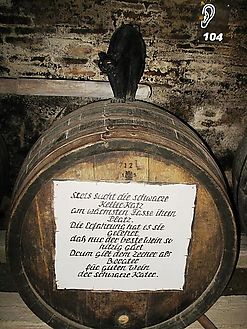 104
712
Stets sucht die schwarze
Keller Katz
am wärmsten Fasse ihren
Platz.
Die Erfahrung hat es sie
gelehrt,
daß nur der beste Wein so
hitzig gärt
Drum gilt dem Zecher als
Berater
für guten Wein
der schwarze Kater.